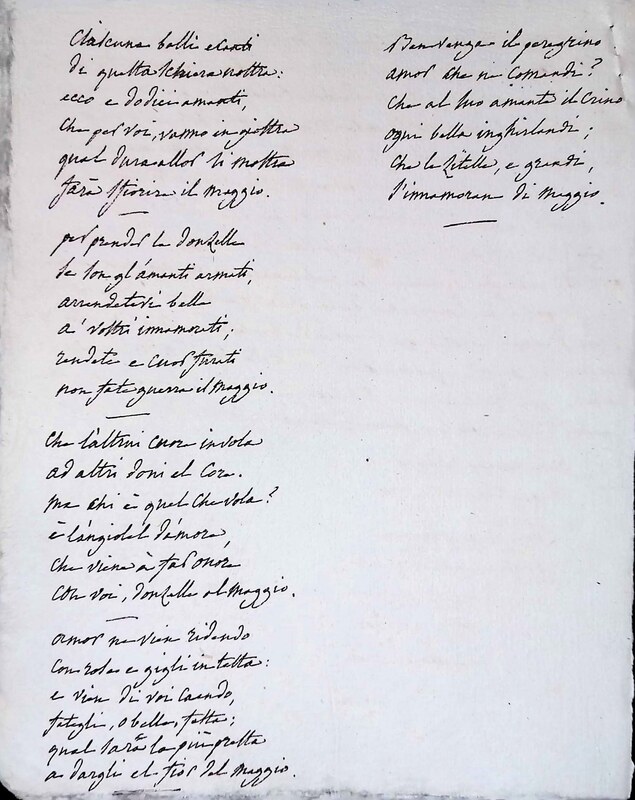 Ciascuna balli e canti
di questa schiera nostra:
ecco e dodici amanti,
che per voi, vanno in giostra
qual dura allor si mostra
farà sfiorire il maggio.
per prender le donzelle
se son gl'amanti armati,
arrendetevi belle
a' vostri innamorati;
rendete e cuor furati
non fate guerra il Maggio.
Che l'altrui cuore invola
ad altri doni el Core.
Ma chi è quel che vola?
è l'angiolel d'amore,
che viene à far onore
con voi, donzelle al Maggio.
amor ne vien ridendo
con rose e gigli in testa:
e vien di voi caendo,
fategli, o belle, festa;
qual sarà la più presta
a dargli el fior del Maggio.
Ben venga il peregrino
amor che ne comandi?
Che al suo amante il Crino
ogni bella inghirlandi;
Che le Zitelle, e grandi,
s'innamoran di Maggio.